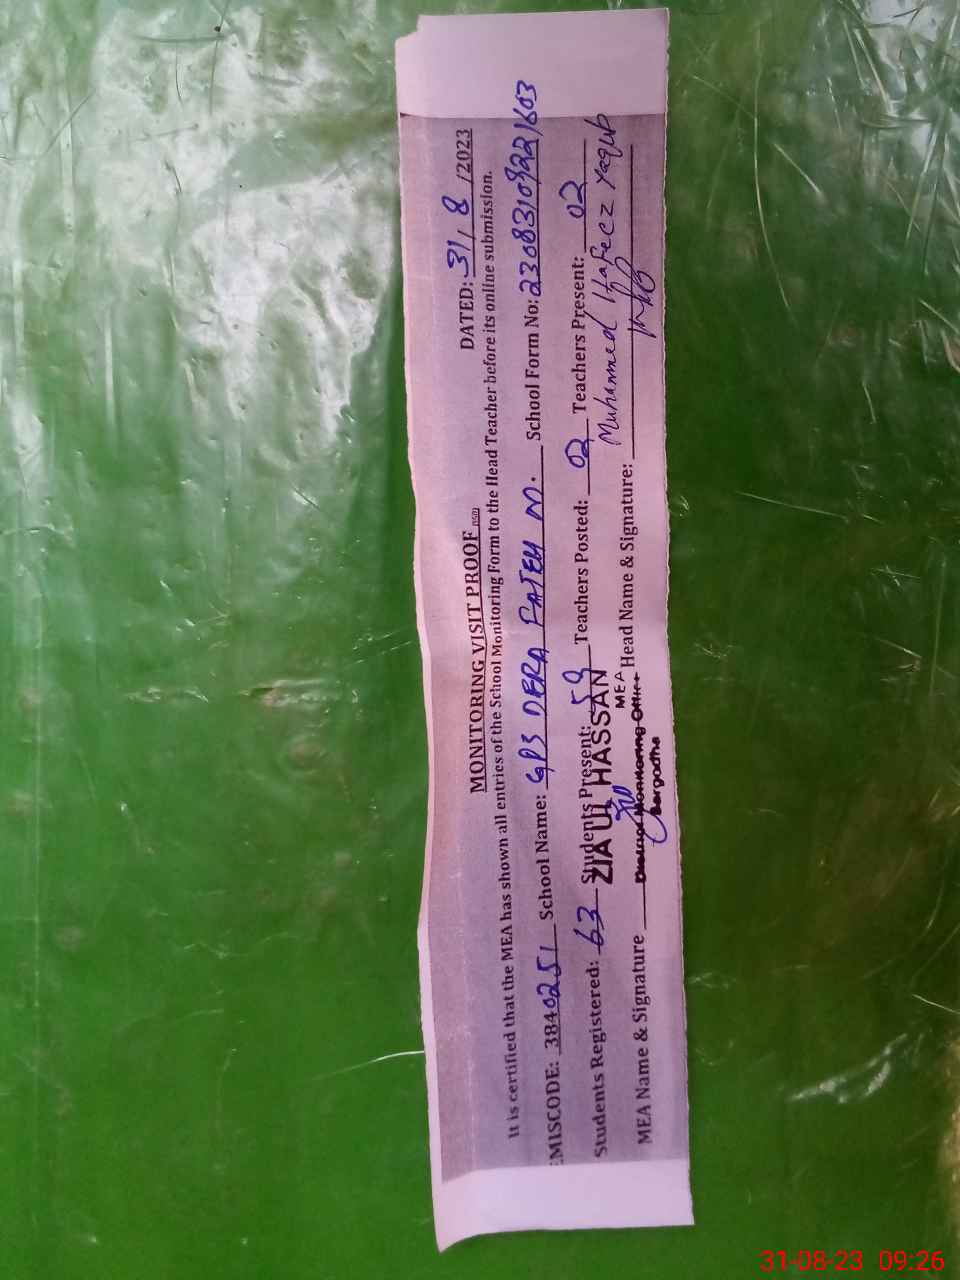 MONITORING VISIT PROOF
DATED: 31/8/2023
It is certified that the MEA has shown all entries of the School Monitoring Form to the Head Teacher before its online submission.
EMISCODE: 3840251 School Name: GPS DERA FATEH M. School Form No:
Students Registered: 63 Students Present: 59 Teachers Posted: 02 Teachers Present: 02
ZIA UL HASSAN
MEA
Muhammed Hafeez Yaqub
MEA Name & Signature Head Name & Signature:
District Monitoring Officer
Sargodha
31-08-23 09:26